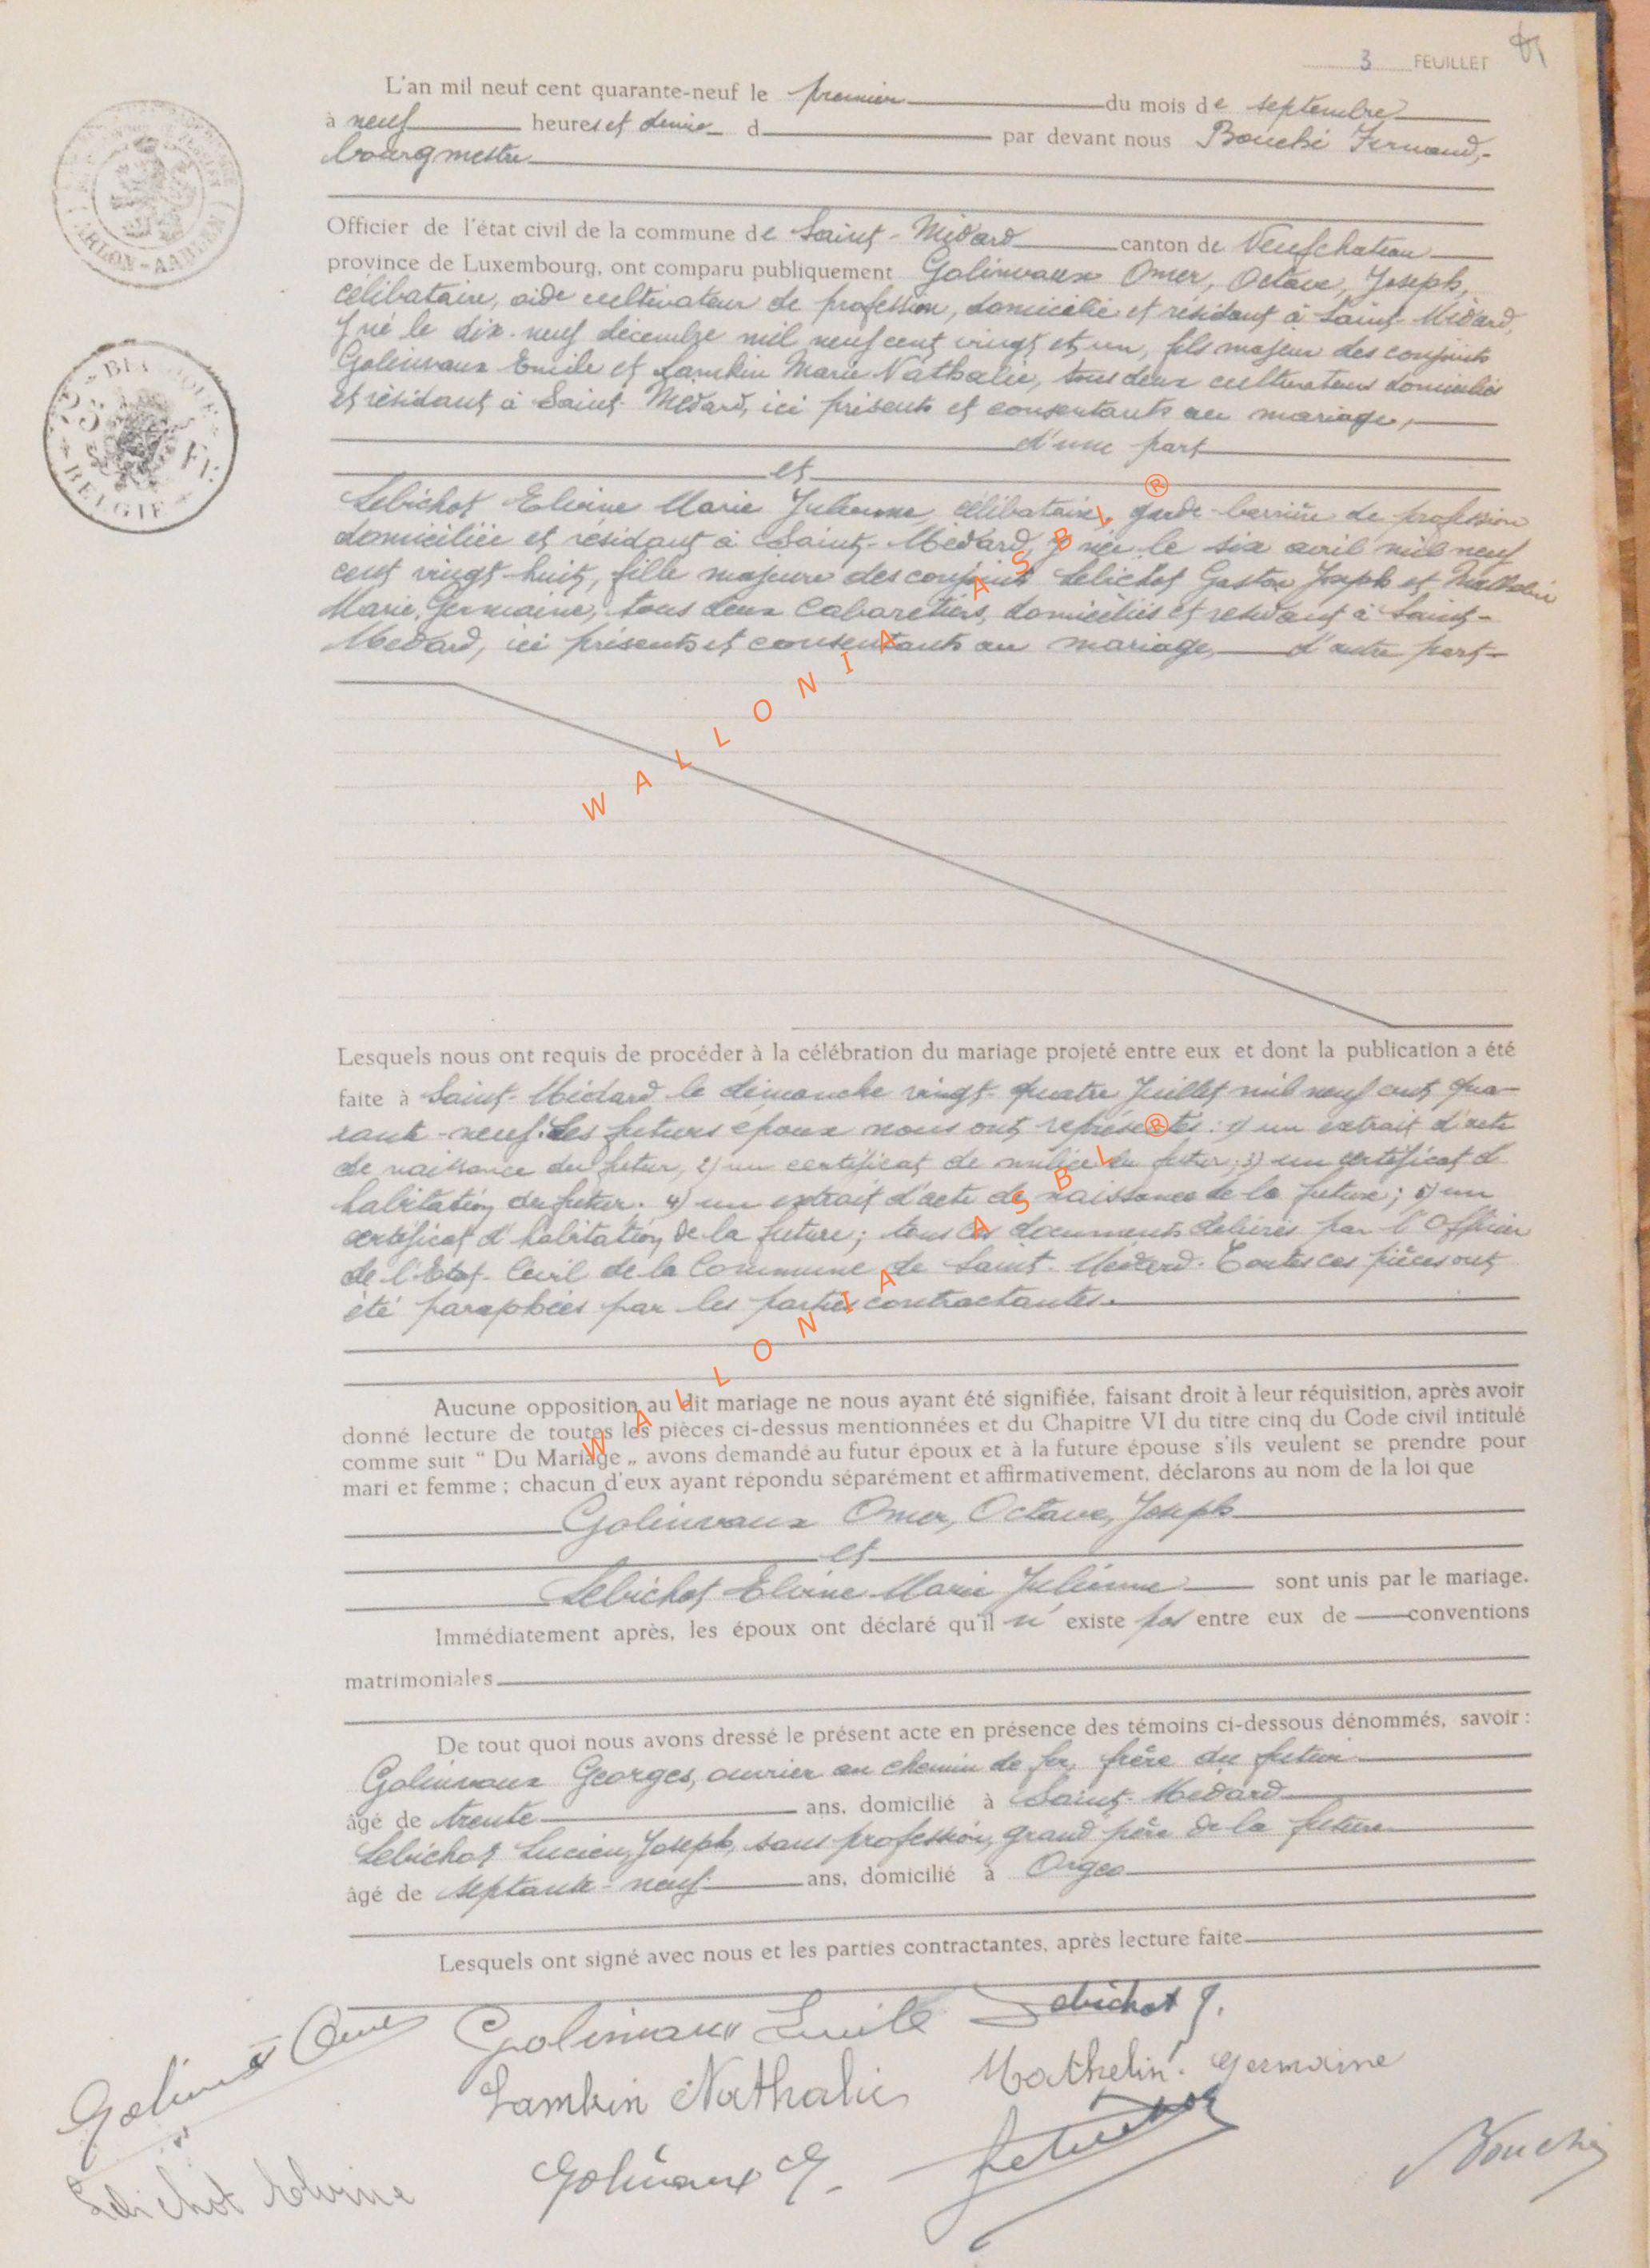 3 FEUILLET
L'an mil neuf cent quarante-neuf le premier du mois de septembre
à neuf heures et demie d par devant nous Bouché Fernand,
bourgmestre
Officier de l'état civil de la commune de Saint-Médard canton de Neufchateau
province de Luxembourg, ont comparu publiquement Golinvaux Omer, Octave, Joseph,
célibataire, aide cultivateur de profession, domicilié et résidant à Saint-Médard,
y né le dix-neuf décembre mil neuf cent vingt et un, fils majeur des conjoints
Golinvaux Emile et Lambin Marie Nathalie, tous deux cultivateurs domiciliés
et résidant à Saint-Médard, ici présents et consentants au mariage,
d'une part
et
Lebichot Elvine Marie Julienne, célibataire, garde-barrière de profession
domiciliée et résidant à Saint-Médard, y née le six avril mil neuf
cent vingt-huit, fille majeure des conjoints Lebichot Gaston Joseph et Mathelin
Marie, Germaine, tous deux cabaretiers, domiciliés et résidant à Saint-
Médard, ici présents et consentants au mariage, d'autre part
Lesquels nous ont requis de procéder à la célébration du mariage projeté entre eux et dont la publication a été
faite à Saint-Médard le dimanche vingt-quatre Juillet mil neuf cent qua-
rante-neuf. Les futurs époux nous ont représentés: 1) un extrait d'acte
de naissance du futur, 2) un certificat de milice du futur; 3) un certificat d'
habitation du futur. 4) un extrait d'acte de naissance de la future; 5) un
certificat d'habitation de la future; tous ces documents délivrés par l'Officier
de l'Etat-Civil de la Commune de Saint-Médard. Toutes ces pièces ont
été paraphées par les parties contractantes.
Aucune opposition au dit mariage ne nous ayant été signifiée, faisant droit à leur réquisition, après avoir
donné lecture de toutes les pièces ci-dessus mentionnées et du Chapitre VI du titre cinq du Code civil intitulé
comme suit “ Du Mariage „ avons demandé au futur époux et à la future épouse s'ils veulent se prendre pour
mari et femme ; chacun d'eux ayant répondu séparément et affirmativement, déclarons au nom de la loi que
Golinvaux Omer, Octave, Joseph
et
Lebichot Elvine Marie Julienne sont unis par le mariage.
Immédiatement après, les époux ont déclaré qu'il n' existe pas entre eux de conventions
matrimoniales
De tout quoi nous avons dressé le présent acte en présence des témoins ci-dessous dénommés, savoir :
Golinvaux Georges, ouvrier au chemin de fer, frère du futur
âgé de trente ans, domicilié à Saint-Médard
Lebichot Lucien, Joseph, sans profession, grand père de la future
âgé de septante-neuf ans, domicilié à Orgeo
Lesquels ont signé avec nous et les parties contractantes, après lecture faite
Golinvaux Omer Golinvaux Emile Lebichot G.
Lambin Nathalie Mathelin Germaine
Lebichot Elvine Golinvaux G. Bouché
WALLONIA ASBL ®
WALLONIA ASBL ®
ARLON-AARLEN
BELGIQUE
BELGIE